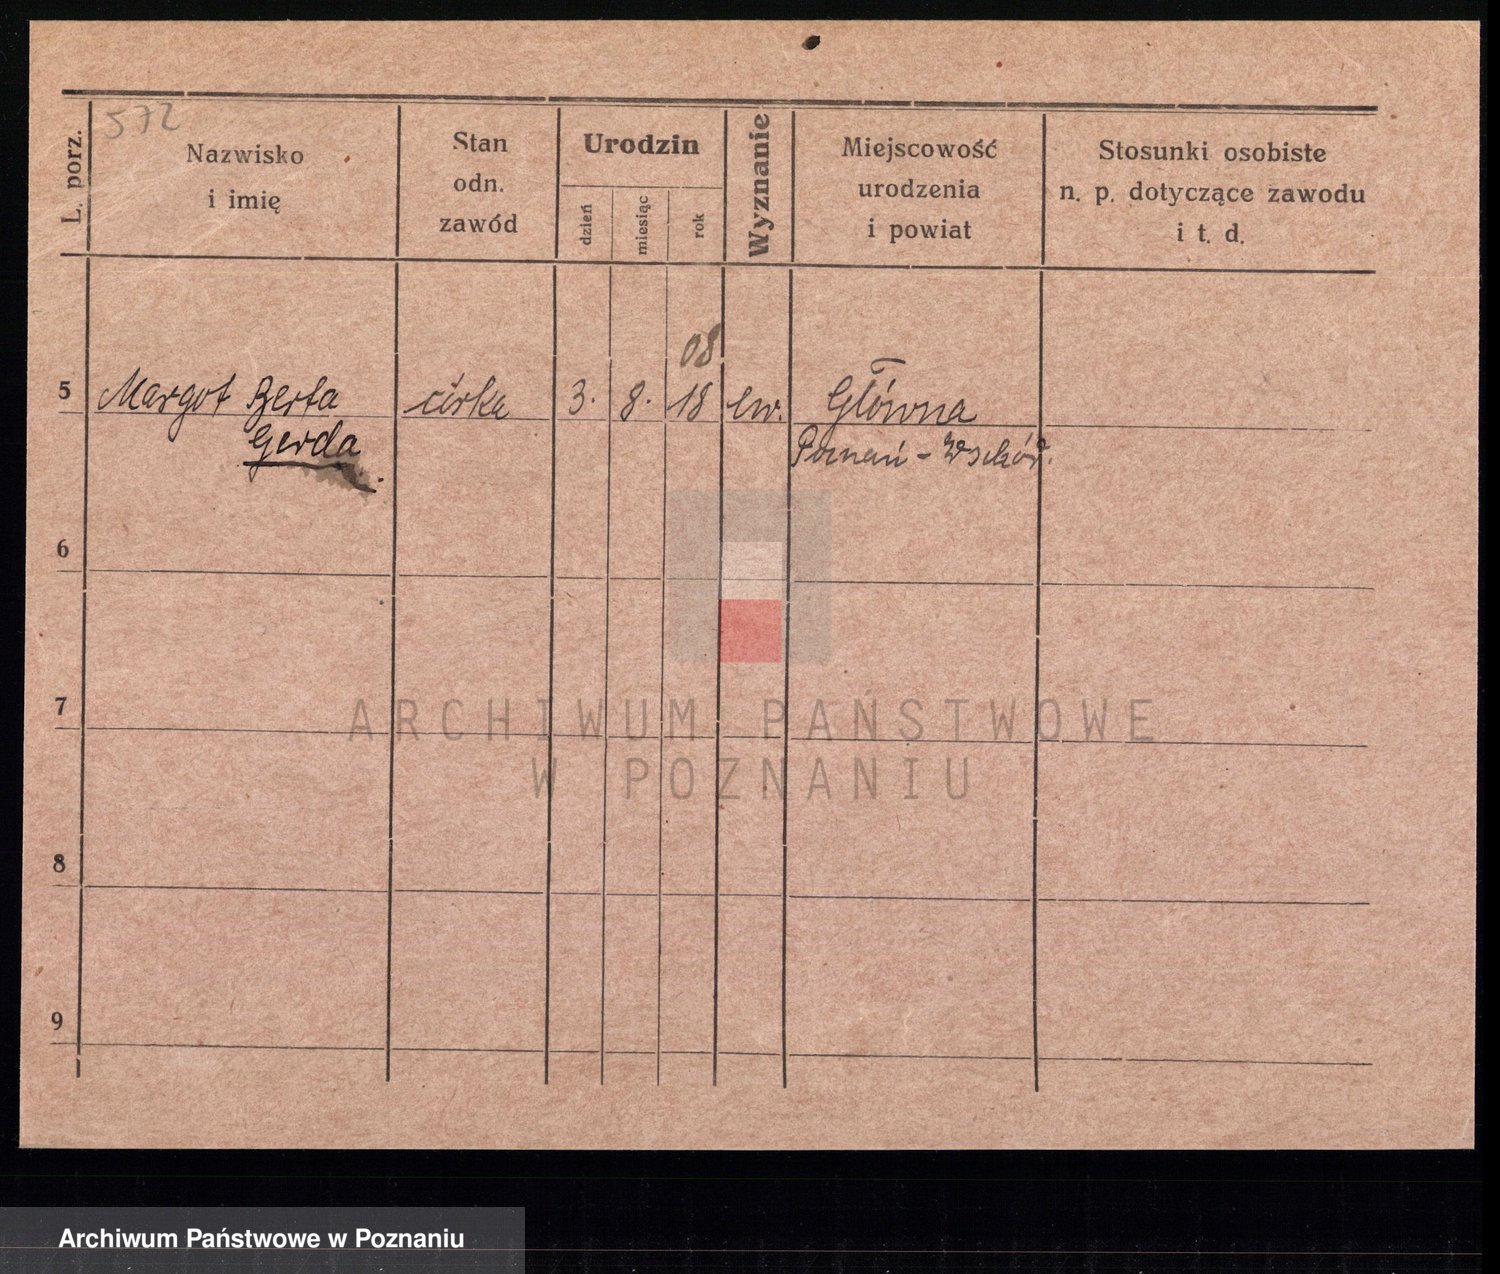 572
L. porz.
Nazwisko
i imię
Stan
odn.
zawód
Urodzin
dzień
miesiąc
rok
Wyznanie
Miejscowość
urodzenia
i powiat
Stosunki osobiste
n. p. dotyczące zawodu
i t. d.
08
5 Margot Berta córka 3. 8. 18 ew. Główna
Gerda Poznań - Wschód.
6
7
8
9
ARCHIWUM PAŃSTWOWE
W POZNANIU
Archiwum Państwowe w Poznaniu